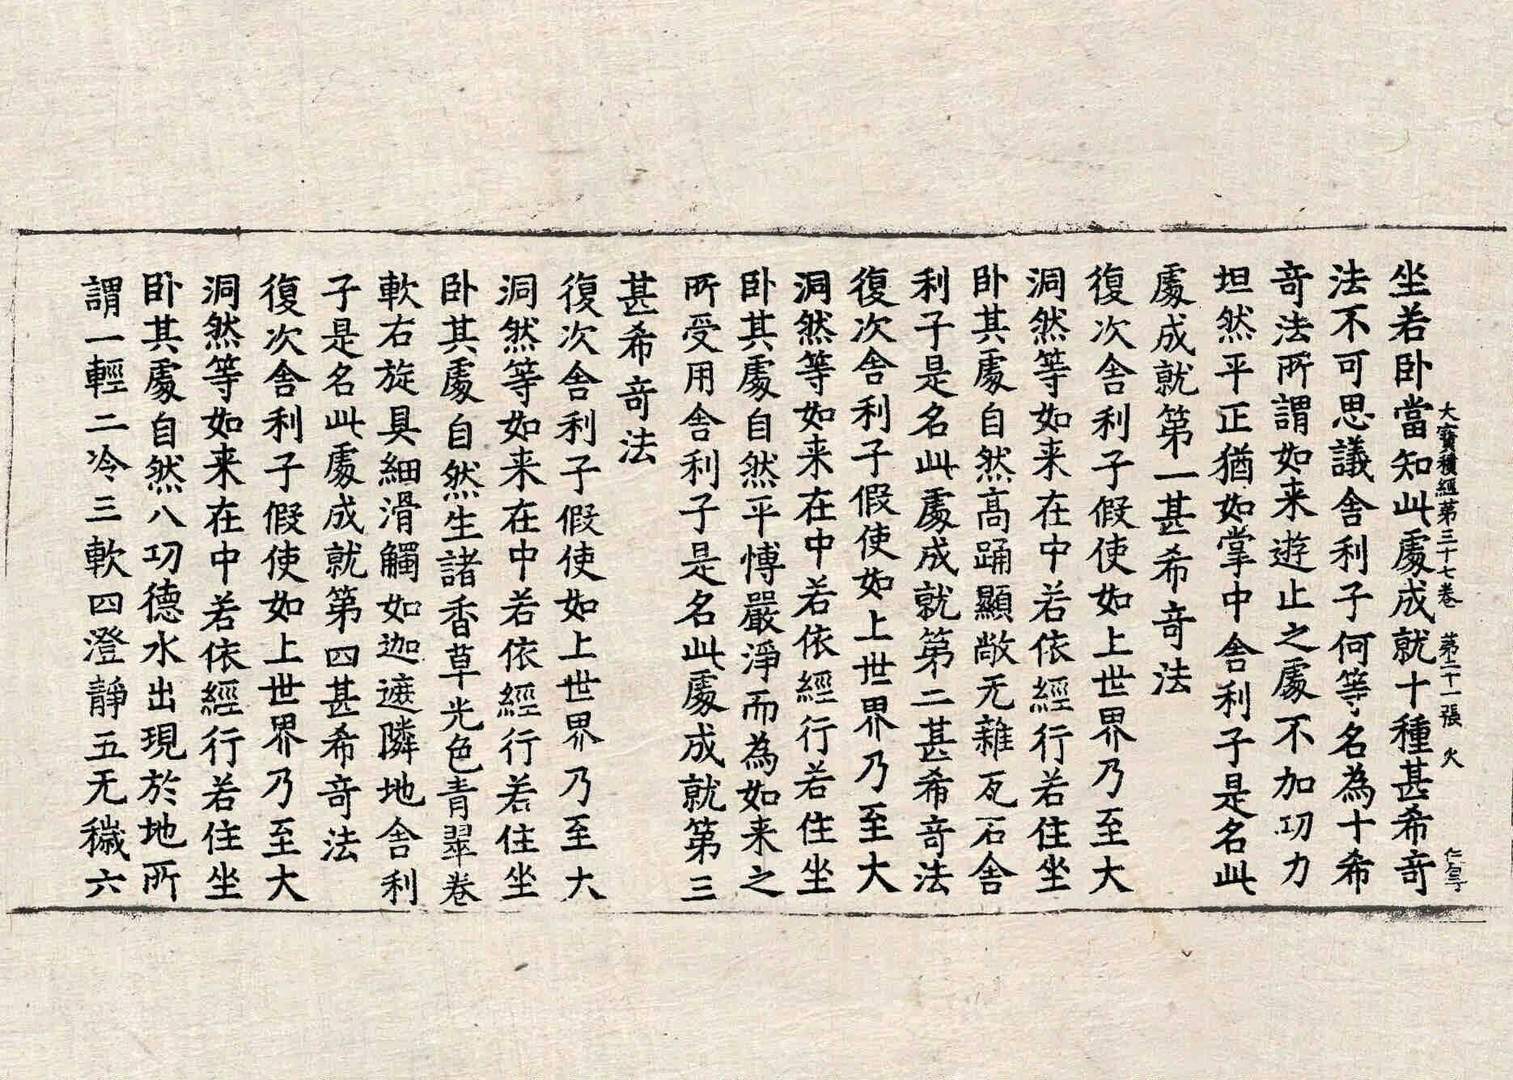 大寶積經第三十七卷　第二十一張　火
坐若卧當知此處成就十種甚希竒
法不可思議舍利子何等名為十希
竒法所謂如来遊止之處不加功力
坦然平正猶如掌中舍利子是名此
處成就第一甚希竒法
復次舍利子假使如上世界乃至大
洞然等如来在中若依經行若住坐
卧其處自然高踊顯敞无雜瓦石舍
利子是名此處成就第二甚希竒法
復次舍利子假使如上世界乃至大
洞然等如来在中若依經行若住坐
卧其處自然平愽嚴淨而為如来之
所受用舍利子是名此處成就第三
甚希竒法
復次舍利子假使如上世界乃至大
洞然等如来在中若依經行若住坐
卧其處自然生諸香草光色青翠卷
軟右旋具細滑觸如迦遮隣地舍利
子是名此處成就第四甚希竒法
復次舍利子假使如上世界乃至大
洞然等如来在中若依經行若住坐
卧其處自然八功德水出現於地所
謂一輕二冷三軟四澄靜五无穢六